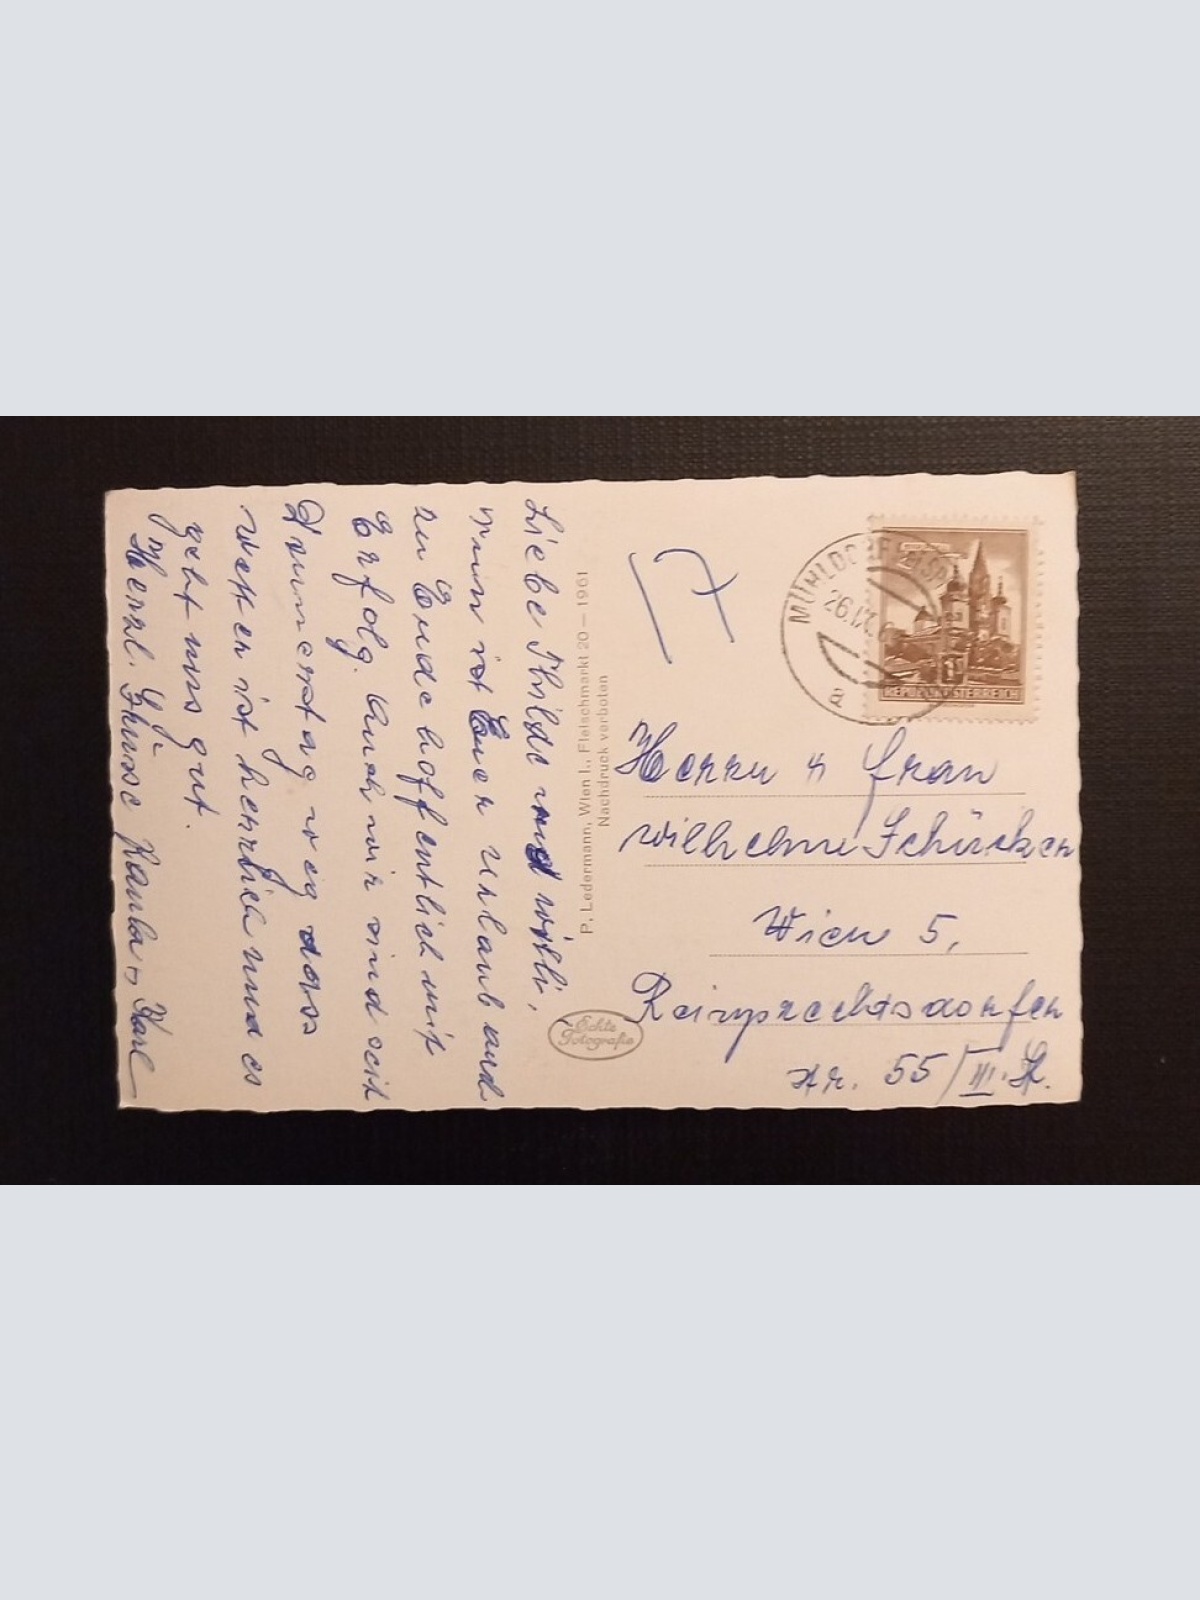 Liebe Thilde und Willi,
nun ist Euer Urlaub auch
zu Ende hoffentlich mit
Erfolg. Auch wir sind seit
Donnerstag weg das
Wetter ist herrlich und es
geht uns gut.
Herzl. Grüsse Karl
P. Ledermann, Wien I., Fleischmarkt 20 — 1961
Nachdruck verboten
Echte
Fotografie
17
MÜHLDORF
26.I
a
REPUBLIK ÖSTERREICH
Herrn u Frau
Wilhelm Schücker
Wien 5,
Reinprechtsdorfer
str. 55/III. St.